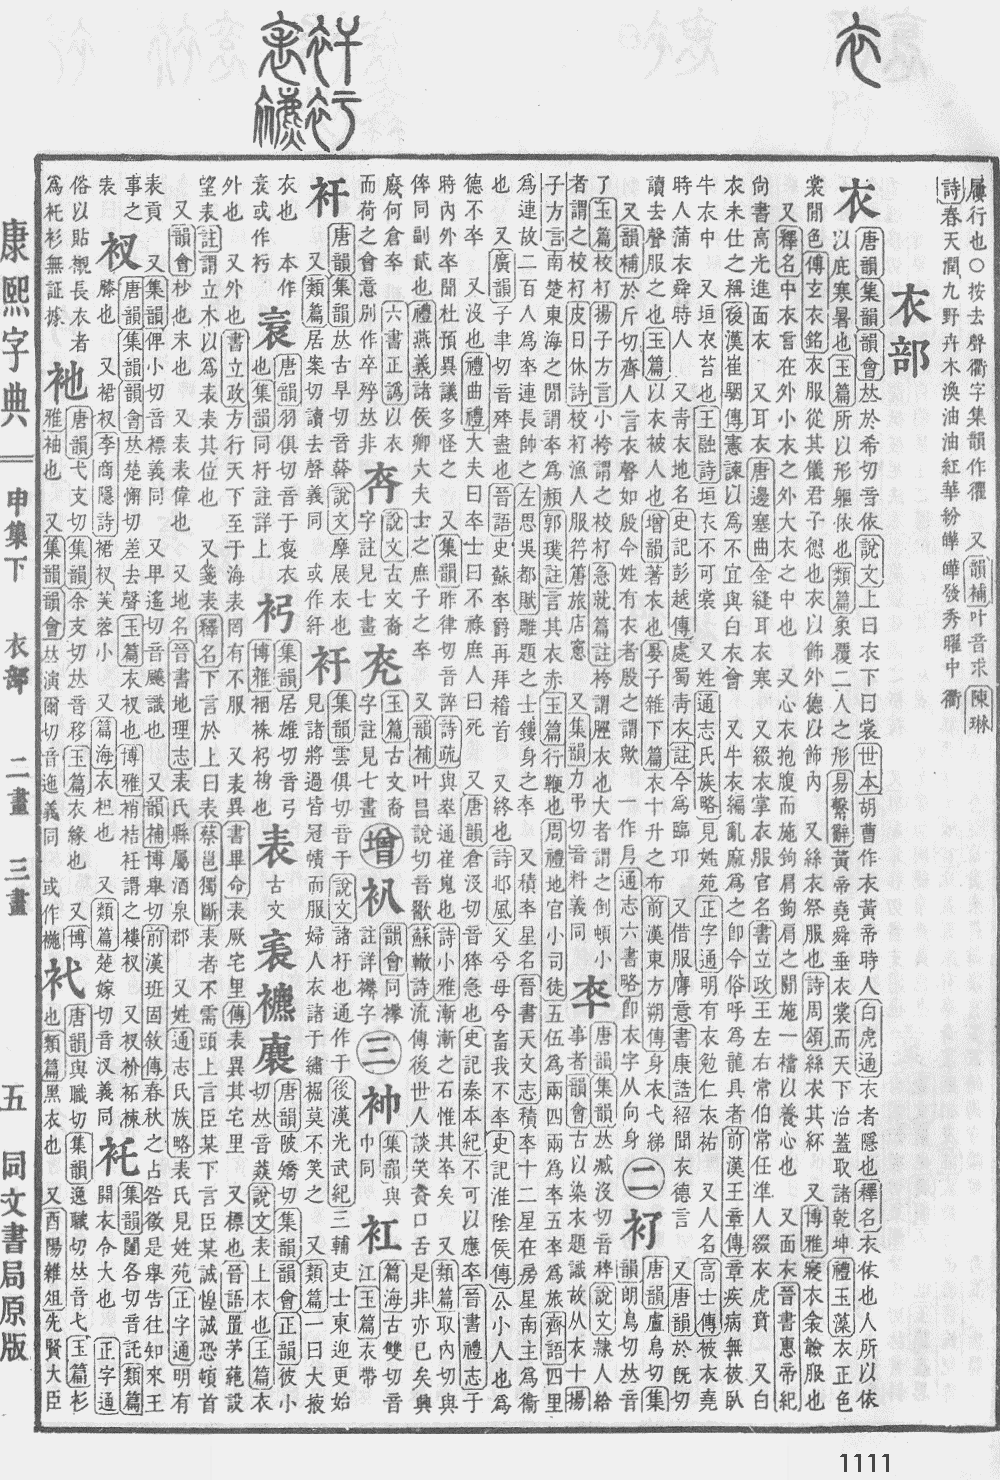 屨行也○按去聲衢字集韻作忂 又韻補叶音求陳琳
詩春天潤九野卉木渙油油紅華紛曄曄發秀曜中衢
衣部
衣
唐韻集韻韻會𠀤於希切音依說文上曰衣下曰裳世本胡曹作衣黃帝時人白虎通衣者隱也釋名衣依也人所以依
以庇寒暑也玉篇所以形軀依也類篇象覆二人之形易繫辭黃帝堯舜垂衣裳而天下治蓋取諸乾坤禮玉藻衣正色
裳閒色傳玄衣銘衣服從其儀君子德也衣以飾外德以飾內 又絲衣祭服也詩周頌絲衣其紑 又博雅寢衣衾𧜵服也
又釋名中衣言在外小衣之外大衣之中也 又心衣抱腹而施鉤肩鉤肩之閒施一襠以養心也 又面衣晉書惠帝紀
尙書高光進面衣 又耳衣唐邊塞曲金縫耳衣寒 又綴衣掌衣服官名書立政王左右常伯常任準人綴衣虎賁 又白
衣未仕之稱後漢崔駰傳憲諫以爲不宜與白衣會 又牛衣編亂麻爲之卽今俗呼爲龍具者前漢王章傳章疾病無被臥
牛衣中 又垣衣苔也王融詩垣衣不可裳 又姓通志氏族略見姓苑正字通明有衣勉仁衣祐 又人名高士傳被衣堯
時人蒲衣舜時人 又靑衣地名史記彭越傳處蜀靑衣註今爲臨邛 又借服膺意書康誥紹聞衣德言 又唐韻於旣切
讀去聲服之也玉篇以衣被人也增韻著衣也晏子雜下篇衣十升之布前漢東方朔傳身衣弋綈
又韻補於斤切齊人言衣聲如殷今姓有衣者殷之謂歟 一作𠂣通志六書略卽衣字从向身
二
𧘈
唐韻盧鳥切集
韻朗鳥切𠀤音
了玉篇校𧘈揚子方言小袴謂之校𧘈急就篇註袴謂脛衣也大者謂之倒頓小
者謂之校𧘈皮日休詩校𧘈漁人服筓篖旅店窻 又集韻力弔切音料義同
卒
唐韻集韻𠀤臧沒切音椊說文隸人給
事者韻會古以染衣題識故从衣十揚
子方言南楚東海之閒謂卒爲頳郭璞註言其衣赤玉篇行鞭也周禮地官小司徒五伍爲兩四兩爲卒五卒爲旅齊語四里
爲連故二百人爲卒連長帥之左思吳都賦雕題之士鏤身之卒 又積卒星名晉書天文志積卒十二星在房星南主爲衞
也 又廣韻子聿切音殚盡也晉語史蘇卒爵再拜稽首 又終也詩邶風父兮母兮畜我不卒史記淮陰侯傳公小人也爲
德不卒 又沒也禮曲禮大夫曰卒士曰不祿庶人曰死 又唐韻倉沒切音猝急也史記秦本紀不可以應卒晉書禮志于
時內外卒聞杜預異議多怪之 又集韻昨律切音誶詩疏與崒通崔嵬也詩小雅漸漸之石惟其卒矣 又類篇取內切與
倅同副貳也禮燕義諸侯卿大夫士之庶子之卒 又韻補叶昌說切音歠蘇轍詩流傳後世人談笑資口舌是非亦已矣興
廢何倉卒 六書正譌以衣
而荷之會意別作卒殍𠀤非
𠫭
說文古文裔
字註見士畫
𠫮
玉篇古文裔
字註見七畫
增
𧘇
韻會同襻
註詳襻字
三
𧘋
集韻與
巾同
𧘌
篇海古雙切音
江玉篇衣帶
衦
唐韻集韻𠀤古旱切音笴說文摩展衣也
又類篇居案切讀去聲義同 或作紆
衧
集韻雲俱切音于說文諸衧也通作于後漢光武紀三輔吏士東迎更始
見諸將過皆冠幘而服婦人衣諸于繡镼莫不笑之 又類篇一曰大掖
衣也 本作
衺或作袔
𧘝
唐韻羽俱切音于裒衣
也集韻同衧註詳上
𧘑
集韻居雄切音弓
博雅裍袾𧘑裑也
表
古文𧘝襛㐮
唐韻陂矯切集韻韻會正韻彼小
切𠀤音㵱說文表上衣也玉篇衣
外也 又外也書立政方行天下至于海表罔有不服 又表異書畢命表厥宅里傳表異其宅里 又標也晉語置茅蕝設
望表註謂立木以爲表表其位也 又箋表釋名下言於上曰表蔡邕獨斷表者不需頭上言臣某下言臣某誠惶誠恐頓首
又韻會杪也末也 又表表偉也 又地名晉書地理志表氏縣屬酒泉郡 又姓通志氏族略表氏見姓苑正字通明有
表貢 又集韻俾小切音標義同 又卑遙切音飈識也 又韻補博舉切前漢班固敘傳春秋之占咎徵是舉告往知來王
事之
表
衩
唐韻集韻韻會𠀤楚懈切差去聲玉篇衣衩也博雅裯袺衽謂之褸衩 又衩衸袥㭼
膝也 又裙衩李商隱詩裙衩芙蓉小 又篇海衣袒也 又類篇楚嫁切音汊義同
𧘏
集韻闥各切音託類篇
開衣令大也 正字通
俗以貼襯長衣者
爲杔衫無証據
衪
唐韻弋支切集韻余支切𠀤音移玉篇衣緣也 又博
雅袖也 又集韻韻會𠀤演爾切音迤義同 或作𧝎
𧘍
唐韻與職切集韻逸職切𠀤音弋玉篇衫
也類篇黑衣也 又酉陽雜俎先賢大臣
康熙字典
申集下 衣部 二畫 三畫
五 同文書局原版
1111